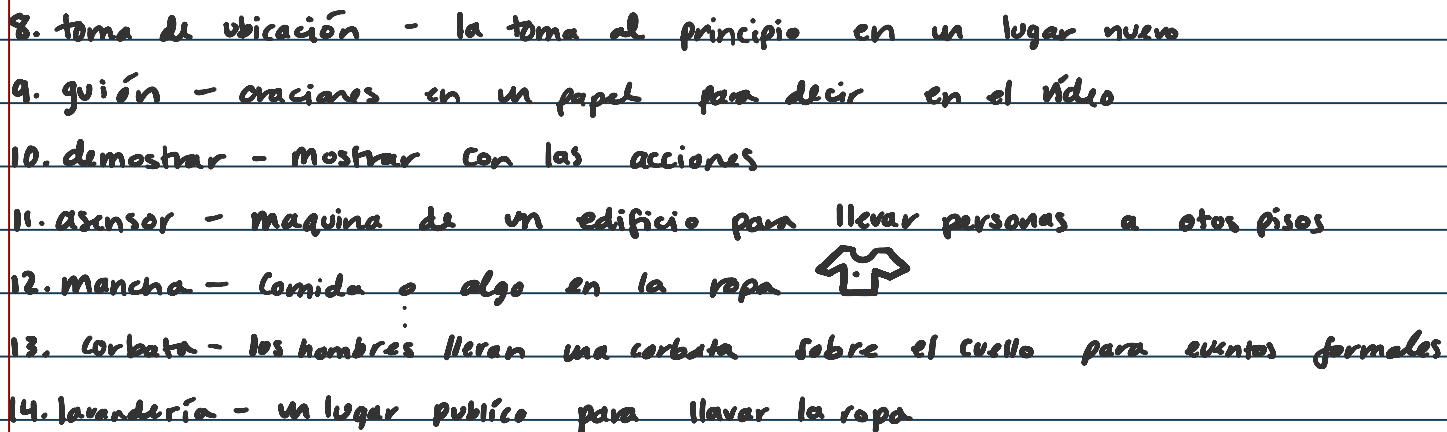 8. toma de ubicación - la toma al principio en un lugar nuevo
9. guión - oraciones en un papel para decir en el vídeo
10. demostrar - mostrar con las acciones
11. asensor - maquina de un edificio para llevar personas a otos pisos
12. mancha - comida o algo en la ropa
13. corbata - los hombres llevan una corbata sobre el cuello para eventos formales
14. lavandería - un lugar publíco para llavar la ropa